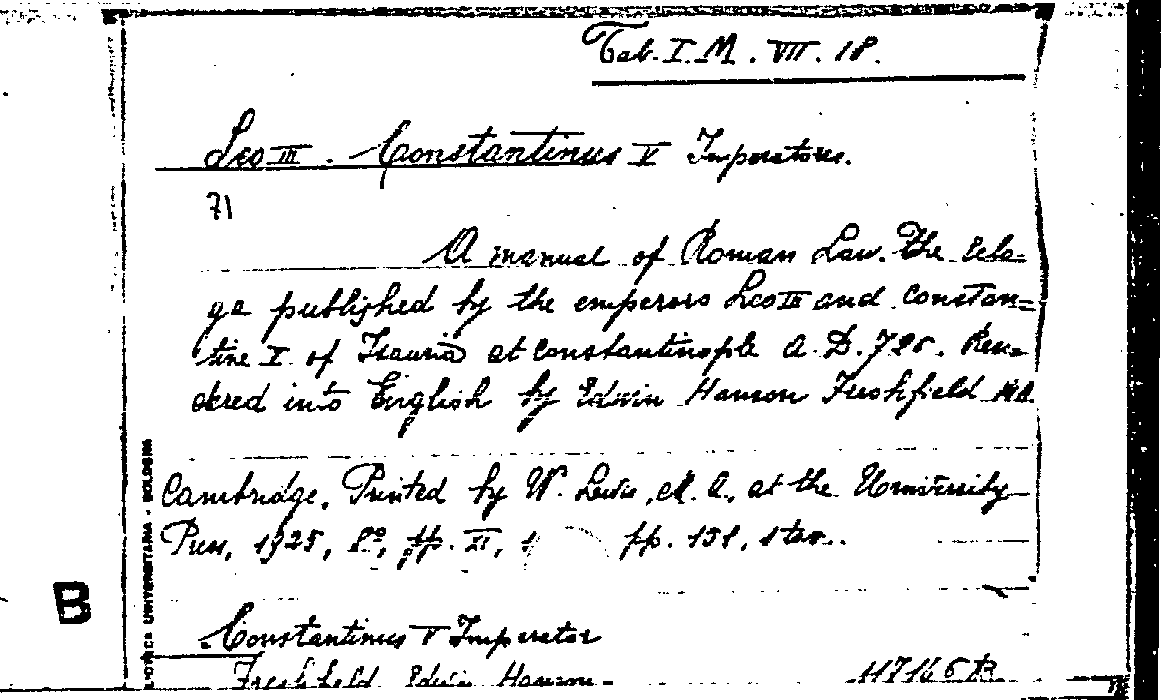 Tab. I. M. VII. 18.
Leo III. Constantinus V Imperatores.
71
A manual of Roman Law. The Eclo=
ga published by the emperors Leo III and Constan=
tine V of Isauria at Constantinople A. D. 726. Ren=
dered into English by Edwin Hanson Freshfield M.A.
Cambridge, Printed by W. Lewis, M. A., at the University
Press, 1925, 8º, pp. XI, 1 pp. 151,
B
UNIVERSITARIA - BOLOGNA
Constantinus V Imperator
Freshfield Edwin Hanson -